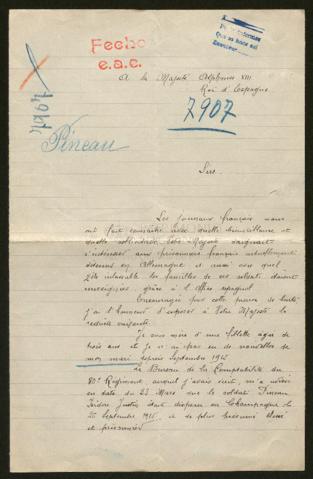 Fecho
e.a.c.
A Sa Majesté Alphonse XIII
Roi d'Espagne
7907
7907
Pineau
Sire.
Les journaux français nous
ont fait connaître avec quelle bienveillance et
quelle sollicitude Votre Majesté daignait
s'intéresser aux prisonniers français actuellement
internés en Allemagne et aussi avec quel
zèle inlassable les familles de ces soldats étaient
renseignées grâce à l'Office espagnol
Encouragée par cette preuve de bonté
j'ai l'honneur d'exposer à Votre Majesté la
requête suivante.
Je suis mère d'une fillette âgée de
trois ans et je n'ai pas eu de nouvelles de
mon mari depuis Septembre 1915
Le Bureau de la Comptabilité du
80e Régiment auquel j'avais écrit, m'a
en date du 23 Mars que le soldat Pineau
Isidore Justin était disparu en Champagne le
25 Septembre 1915 et
et prisonnier